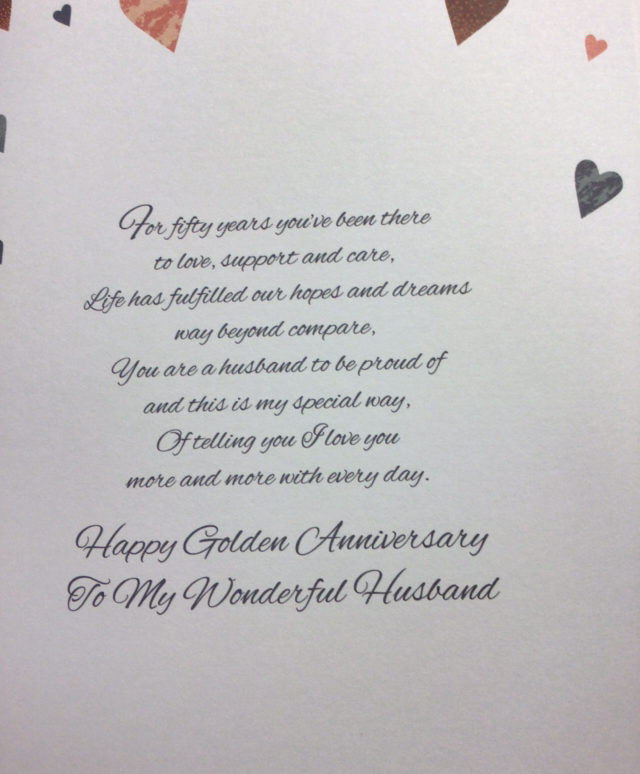 For fifty years you've been there
to love, support and care,
Life has fulfilled our hopes and dreams
way beyond compare,
You are a husband to be proud of
and this is my special way,
Of telling you I love you
more and more with every day.
Happy Golden Anniversary
To My Wonderful Husband